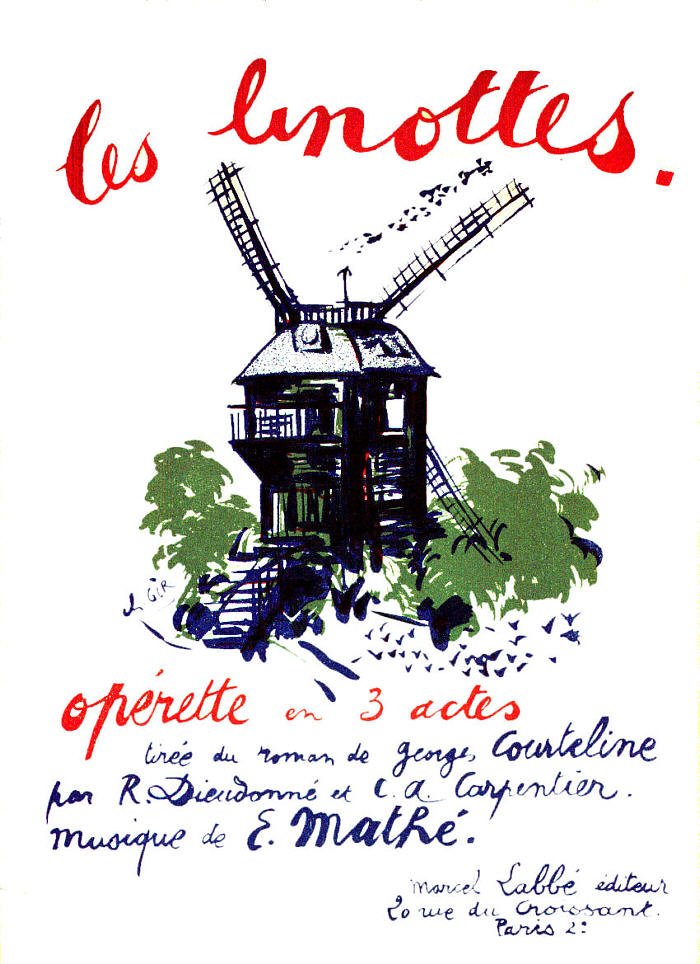 les linottes.
Ch GIR
opérette en 3 actes
tirée du roman de georges Courteline
par R. Dieudonné et C. A. Carpentier.
musique de E. Mathé.
Marcel Labbé éditeur
20 rue du Croissant.
Paris 2: